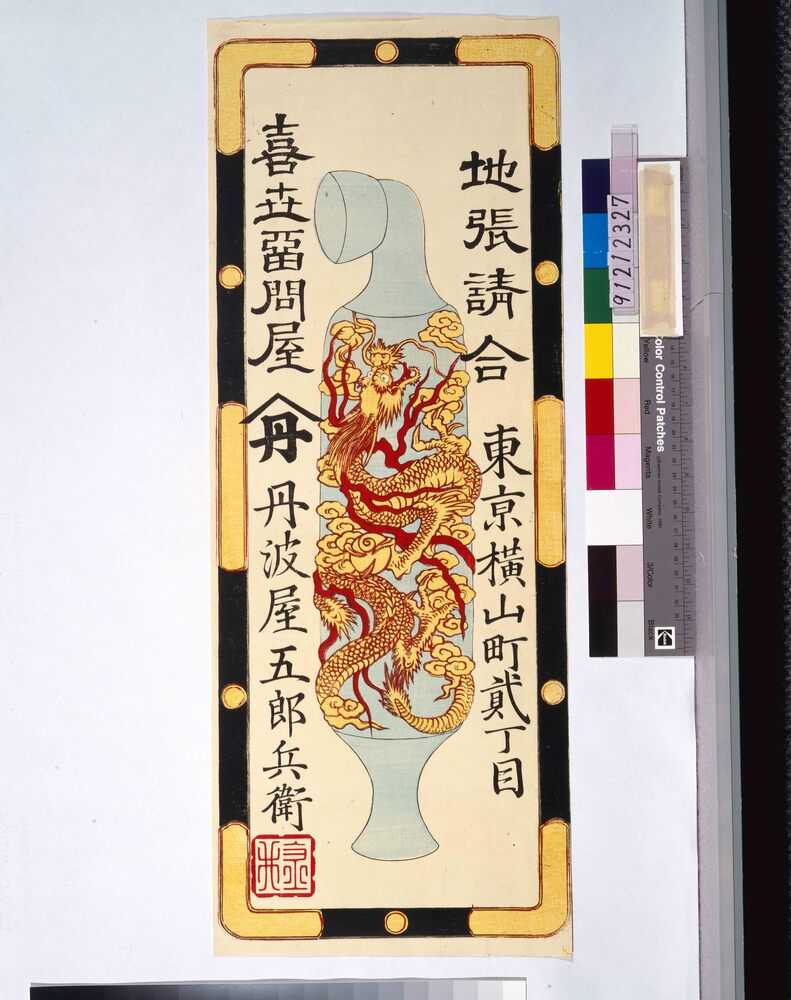 地張請合
東京橫山町貳丁目
喜世畱問屋
丹
丹波屋五郎兵衛
91212327
Color Control Patches
Yellow
Red
Magenta
White
3/Color
Black
Kodak